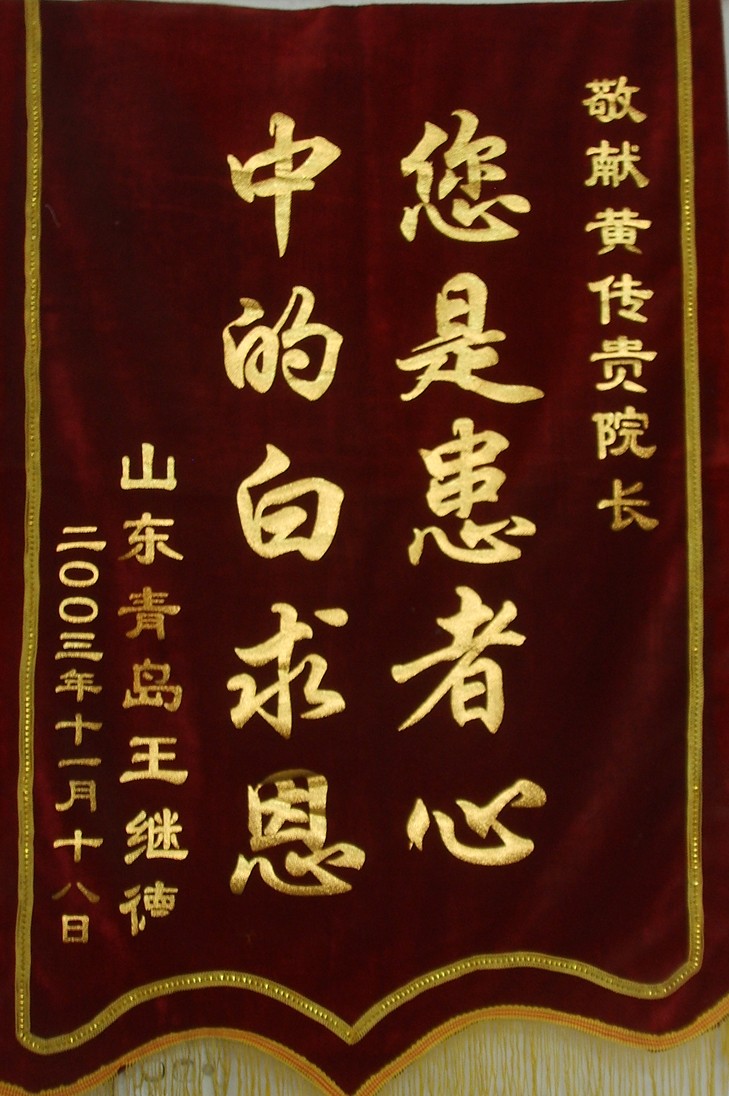 敬献黄传贵院长
您是患者心
中的白求恩
山东青岛王继德
二〇〇三年十一月十八日